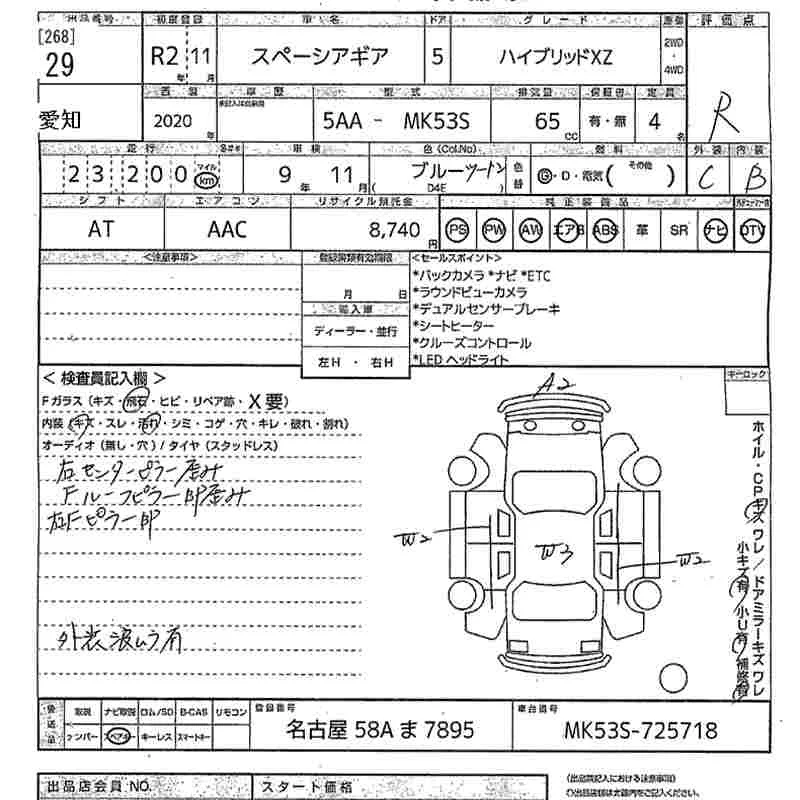 出品番号 初度登録 車名 ドア グレード 車型 評価点
[268]
29 R2年 11月 スペーシアギア 5 ハイブリッドXZ 2WD・4WD R
西暦 車歴 型式 排気量 保証書 定員
愛知 2020年 5AA - MK53S 65cc 有・無 4名
走行 車検 色(Col.No) 燃料 外装 内装
23,200 マイル km 9年 11月 ブルーツートン 色替 G・D・電気( その他 ) C B
( D4E )
シフト エアコン リサイクル預託金 純正装備品
AT AAC 8,740円 PS PW AW エアB ABS 革 SR ナビ DTV
<注意事項> 登録書類有効期限 <セールスポイント>
月 日
*バックカメラ *ナビ *ETC
*ラウンドビューカメラ
*デュアルセンサーブレーキ
*シートヒーター
*クルーズコントロール
*LED ヘッドライト
輸入車
ディーラー・並行
左H ・ 右H
< 検査員記入欄 > キーロック
Fガラス (キズ・飛石・ヒビ・リペア跡・X要)
内装 (キズ・スレ・汚れ・シミ・コゲ・穴・キレ・破れ・割れ)
オーディオ (無し・穴) / タイヤ (スタッドレス)
右センターピラー歪み
Fルーフピラー部歪み
右Fピラー部
外装波ムラ有
A2
W2
W3
W2
ホイル・CPキズ ワレ / ドアミラーキズ ワレ
小キズ有 小U有 補修有
後送品 取説 ナビ取説 ロム/SD B-CAS リモコン
ナンバー スペアキー キーレス スマートキー
登録番号 名古屋 58A ま 7895
車台番号 MK53S-725718
出品店会員 NO. スタート価格
(出品票記入における注意事項)
()出品店様は太線内をご記入ください。